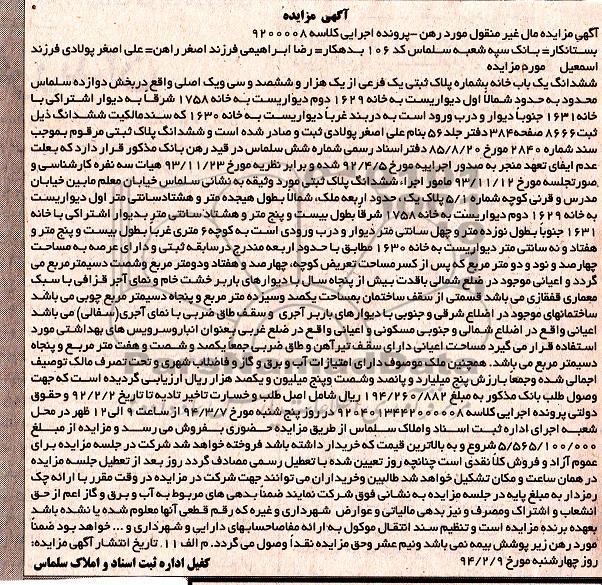 آگهی مزایده
آگهی مزایده مال غیر منقول مورد رهن -پرونده اجرایی کلاسه ۹۲۰۰۰۰۸
بستانکار= بانک سپه شعبه سلماس کد ۱۰۶ بدهکار= رضا ابراهیمی فرزند اصغر راهن= علی اصغر پولادی فرزند
اسمعیل مورد مزایده
ششدانگ یک باب خانه بشماره پلاک ثبتی یک فرعی از یک هزار و ششصد و سی ویک اصلی واقع دربخش دوازده سلماس
محدود به حدود شمالاً اول دیواریست به خانه ۱۶۲۹ دوم دیواریست به خانه ۱۷۵۸ شرقاً به دیوار اشتراکی با
خانه ۱۶۳۱ جنوباً دیوار و درب ورود است به دربند غرباً دیواریست به خانه ۱۶۳۰ که سندمالکیت ششدانگ ذیل
ثبت ۸۶۶۶ صفحه ۳۸۴ دفتر جلد ۵۶ بنام علی اصغر پولادی ثبت و صادر شده است و ششدانگ پلاک ثبتی مرقوم بموجب
سند شماره ۲۸۴۰ مورخ ۸۵/۸/۲۰ دفتراسناد رسمی شماره شش سلماس در قید رهن بانک مذکور قرار دارد که بعلت
عدم ایفای تعهد منجر به صدور اجراییه مورخ ۹۲/۴/۵ شده و برابر نظریه مورخ ۹۳/۱۱/۲۳ هیات سه نفره کارشناسی و
صورتجلسه مورخ ۹۳/۱۱/۱۲ مامور اجرا، ششدانگ پلاک ثبتی مورد وثیقه به نشانی سلماس خیابان معلم مابین خیابان
مدرس و قرنی کوچه شماره ۵/۱ پلاک یک، حدود اربعه ملک، شمالاً بطول هیجده متر و هشتادسانتی متر اول دیواریست
به خانه ۱۶۲۹ دوم دیواریست به خانه ۱۷۵۸ شرقاً بطول بیست و پنج متر و هشتاد سانتی متر بدیوار اشتراکی با خانه
۱۶۳۱ جنوباً بطول نوزده متر و چهل سانتی متر دیوار و درب ورودی است به کوچه ۶ متری غرباً بطول بیست و پنج متر و
هفتاد و نه سانتی متر دیواریست به خانه ۱۶۳۰ مطابق با حدود اربعه مندرج درسابقه ثبتی و دارای عرصه به مساحت
چهارصد و نود و دو متر مربع که پس از کسرمساحت تعریض کوچه، چهارصد و هفتاد ودومتر مربع وشصت دسیمترمربع می
گردد و اعیانی موجود در ضلع شمالی باقدمت بیش از پنجاه سال با دیوارهای باربر خشت خام و نمای آجر قزاقی با سبک
معماری قفقازی می باشد قسمتی از سقف ساختمان بمساحت یکصد وسیزده متر مربع و پنجاه دسیمتر مربع چوبی می باشد
ساختمانهای موجود در اضلاع شرقی و جنوبی با دیوارهای باربر آجری و سقف طاق ضربی با نمای آجری(سفالی) می باشد
اعیانی واقع در اضلاع شمالی و جنوبی مسکونی و اعیانی واقع در ضلع غربی بعنوان انباروسرویس های بهداشتی مورد
استفاده قرار می گیرد مساحت اعیانی دارای سقف تیرآهن و طاق ضربی جمعاً یکصد و شصت و هفت متر مربع و پنجاه
دسیمتر مربع می باشد. همچنین ملک موصوف دارای امتیازات آب و برق و گاز و فاضلاب شهری و تحت تصرف مالک توصیف
اجمالی شده وجمعاً بارزش پنج میلیارد و پانصد وشصت وپنج میلیون و یکصد هزار ریال ارزیابی گردیده است که جهت
وصول طلب بانک مذکور به مبلغ ۱۹۴/۲۶۰/۸۸۲ ریال شامل اصل طلب و خسارت تاخیر تادیه تا تاریخ ۹۲/۲/۲ و حقوق
دولتی پرونده اجرایی کلاسه در روز پنج شنبه مورخ ۹۴/۳/۷ از ساعت ۹ الی ۱۲ ظهر در محل
شعبه اجرای اداره ثبت اسناد واملاک سلماس از طریق مزایده حضوری بفروش می رسد و مزایده از مبلغ
۵/۵۶۵/۱۰۰/۰۰۰ شروع و به بالاترین قیمت که خریدار داشته باشد فروخته خواهد شد شرکت در جلسه مزایده برای
عموم آزاد و فروش کلاً نقدی است چنانچه روز تعیین شده با تعطیل رسمی مصادف گردد روز بعد از تعطیل جلسه مزایده
در همان ساعت و مکان تشکیل خواهد شد طالبین وخریداران می توانند جهت شرکت در مزایده در وقت مقرر با ارائه چک
رمزدار به مبلغ پایه در جلسه مزایده به نشانی فوق شرکت نمایند ضمناً بدهی های مربوط به آب و برق و گاز اعم از حق
انشعاب و اشتراک ومصرف و نیز بدهی مالیاتی و عوارض شهرداری و غیره که رقم قطعی آنها معلوم شده یا نشده باشد
بعهده برنده مزایده است و تنظیم سند انتقال موکول به ارائه مفاصاحسابهای دارایی و شهرداری و ... خواهد بود ضمناً
مورد رهن زیر پوشش بیمه نمی باشد ونیم عشر وحق مزایده نقداً وصول می گردد. م الف ۱۱. تاریخ انتشار آگهی مزایده:
روز چهارشنبه مورخ ۹۴/۲/۹ کفیل اداره ثبت اسناد و املاک سلماس